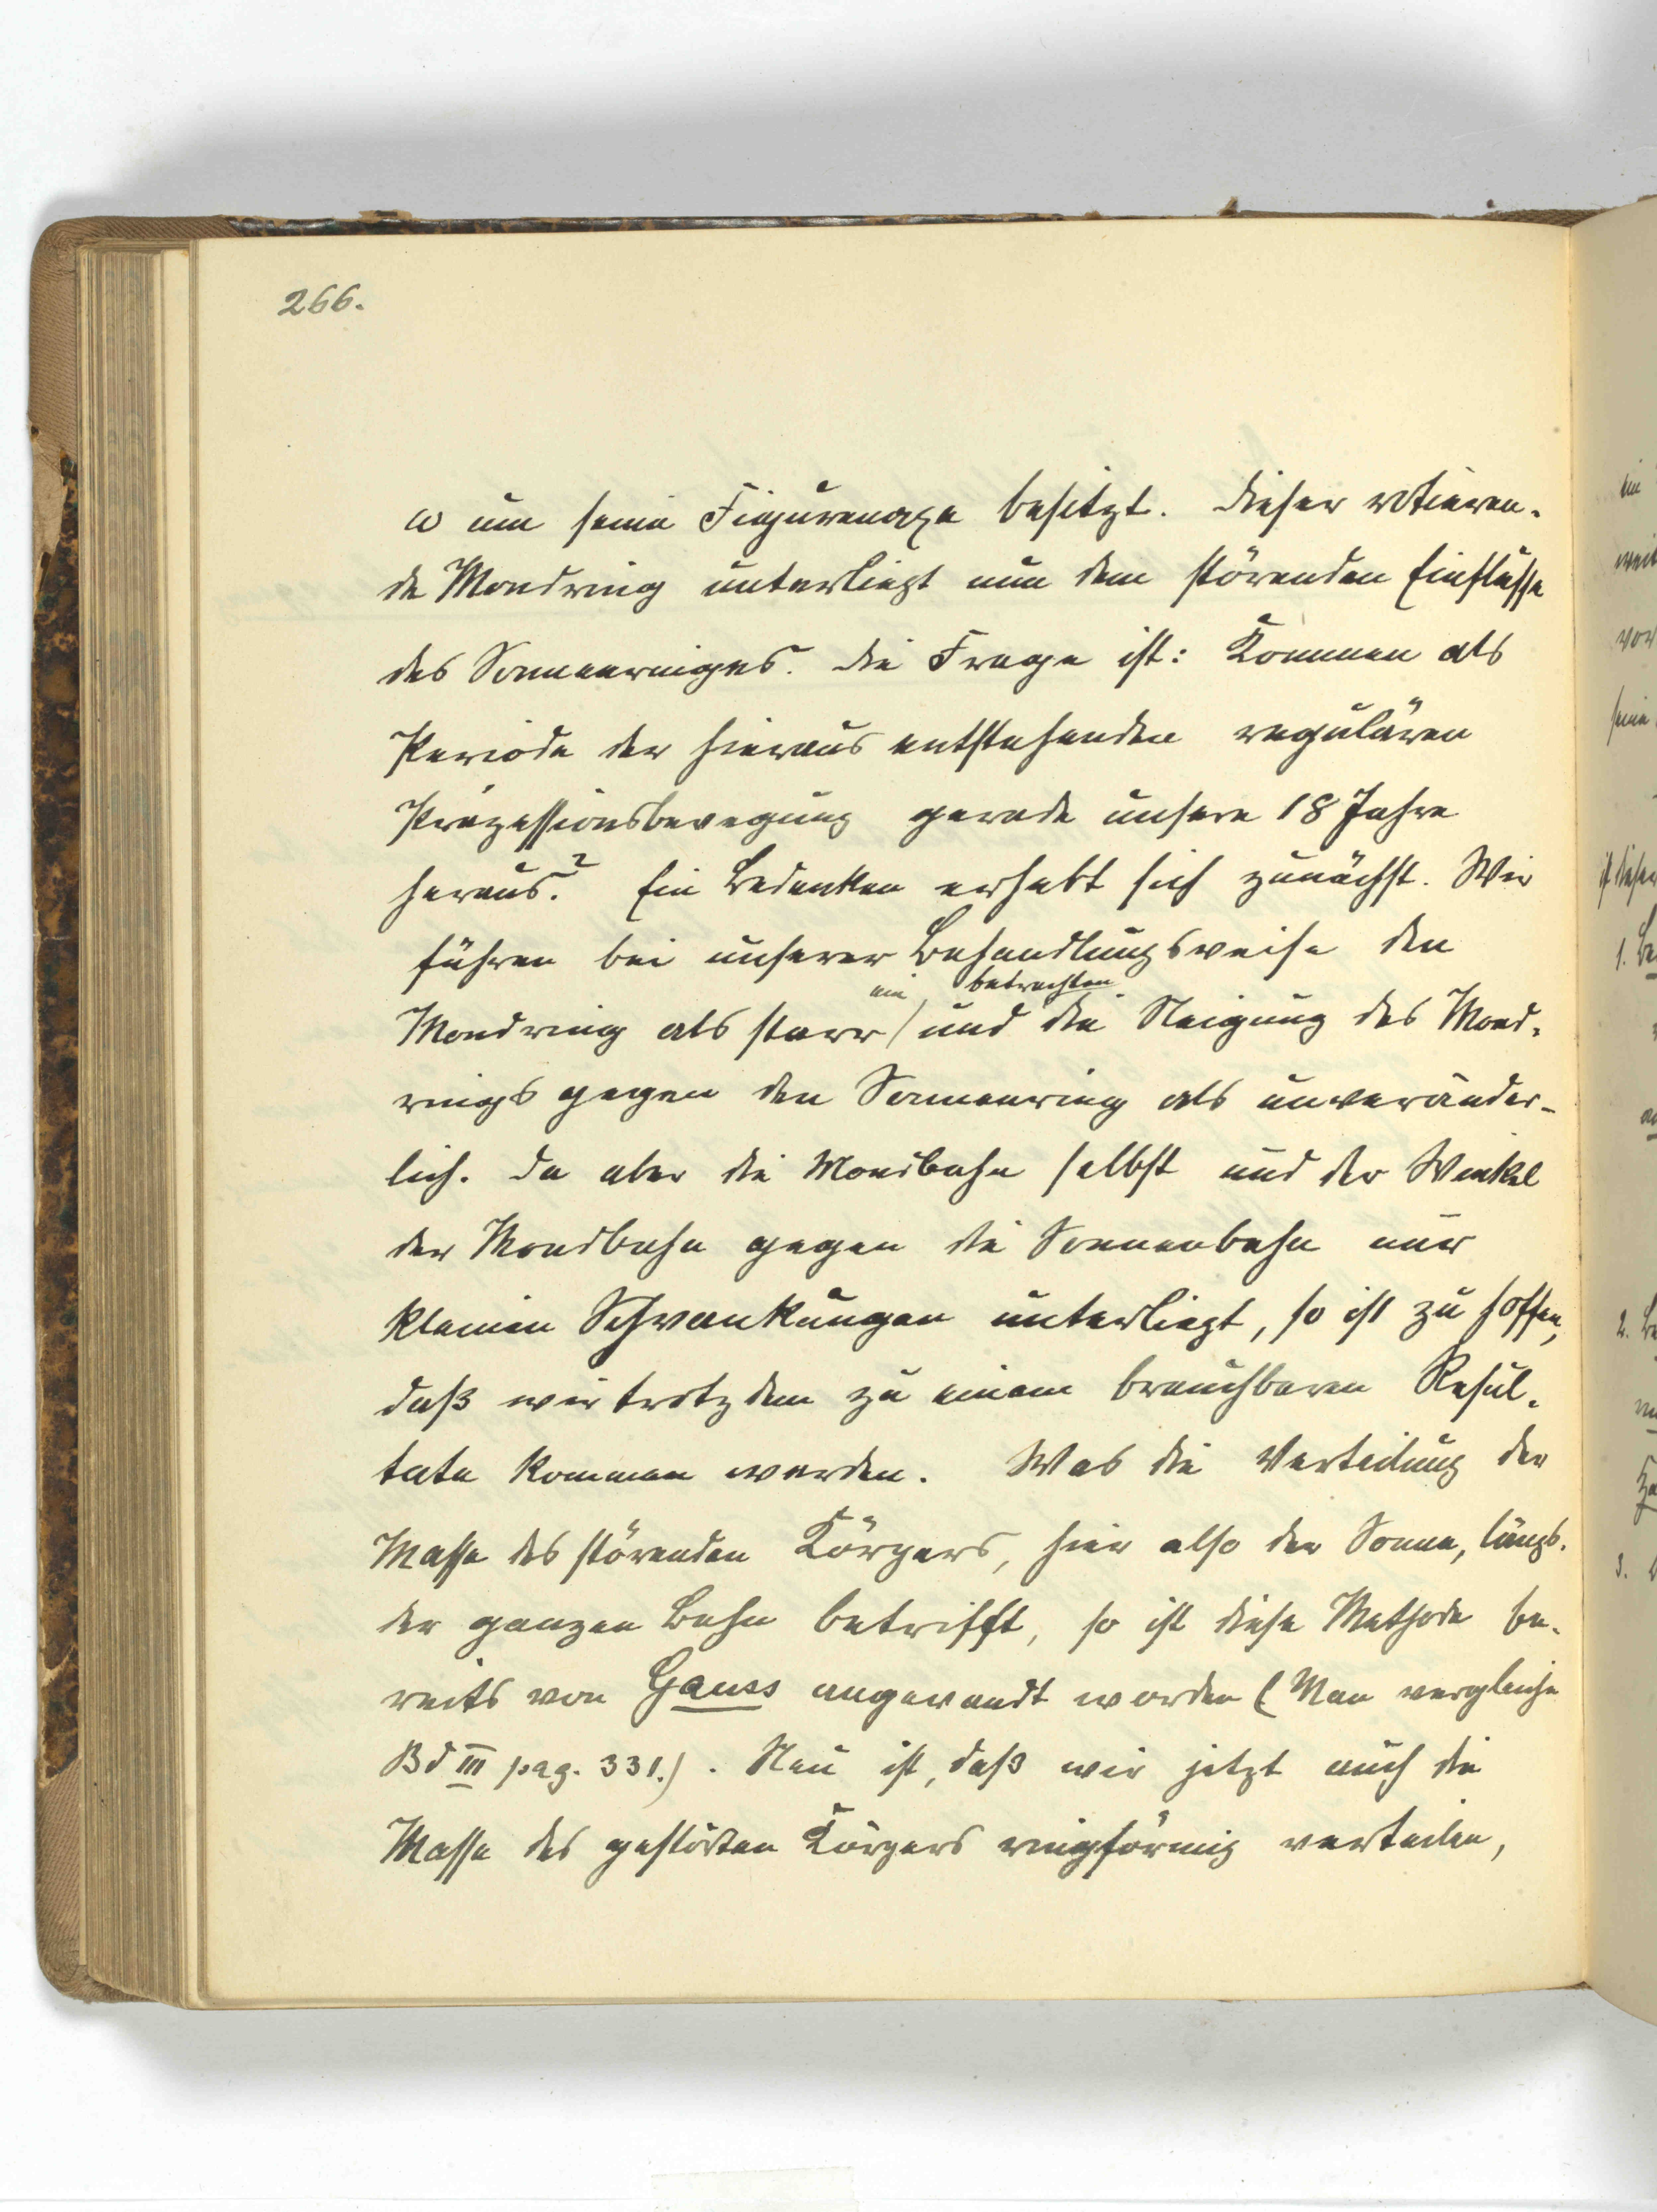 266.
ω um seine Figurenaxe besitzt. Dieser rotieren-
de Mondring unterliegt nun dem störenden Einflusse
des Sonnenringes. Die Frage ist: Kommen als
Periode der hieraus entstehenden regulären
Präzessionsbewegung gerade unsere 18 Jahre
heraus? Ein Bedenken erhebt sich zunächst. Wir
führen bei unserer Behandlungsweise den
ein, betrachten
Mondring als starr / und die Neigung des Mond-
rings gegen den Sonnenring als unveränder-
lich. Da aber die Mondbahn selbst und der Winkel
der Mondbahn gegen die Sonnenbahn nur
kleinen Schwankungen unterliegt, so ist zu hoffen,
daß wir trotzdem zu einem brauchbaren Resul-
tate kommen werden. Was die Verteilung der
Masse des störenden Körpers, hier also der Sonne, längs
der ganzen Bahn betrifft, so ist diese Methode be-
reits von Gauss angewandt worden (Man vergleiche
Bd III pag. 331.). Neu ist, daß wir jetzt auch die
Masse des gestörten Körpers ringförmig verteilen,
1.
2.
3.